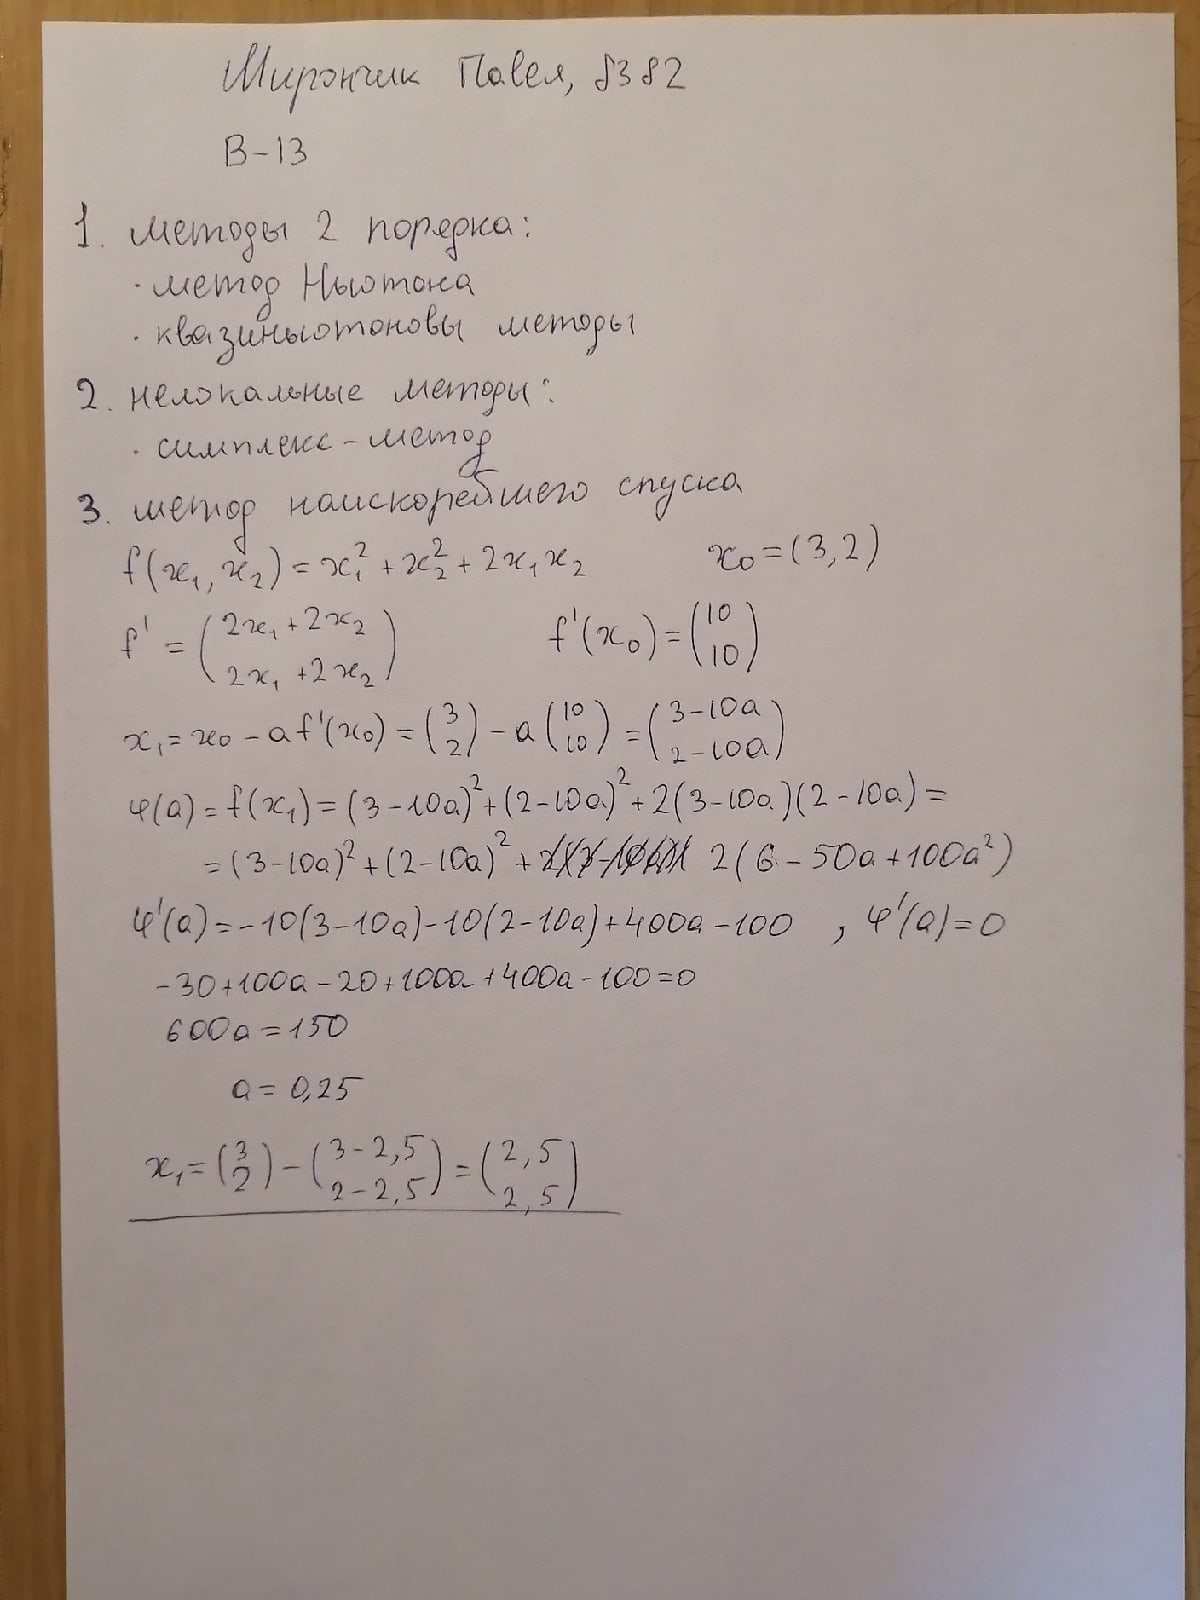 Мирончик Павел, 8382
В-13
1. методы 2 порядка:
· метод Ньютона
· квазиньютоновы методы
2. нелокальные методы:
· симплекс-метод
3. метод наискорейшего спуска
f(x₁, x₂) = x₁² + x₂² + 2x₁x₂    x₀ = (3, 2)
f' = (2x₁ + 2x₂    f'(x₀) = (10
2x₁ + 2x₂)    10)
x₁ = x₀ - a f'(x₀) = (3 2) - a (10 10) = (3-10a 2-10a)
φ(a) = f(x₁) = (3-10a)² + (2-10a)² + 2(3-10a)(2-10a) =
= (3-10a)² + (2-10a)² + 2(6 - 50a + 100a²)
φ'(a) = -10(3-10a) - 10(2-10a) + 400a - 100 , φ'(a) = 0
-30 + 100a - 20 + 100a + 400a - 100 = 0
600a = 150
a = 0,25
x₁ = (3 2) - (3-2,5 2-2,5) = (2,5 2,5)